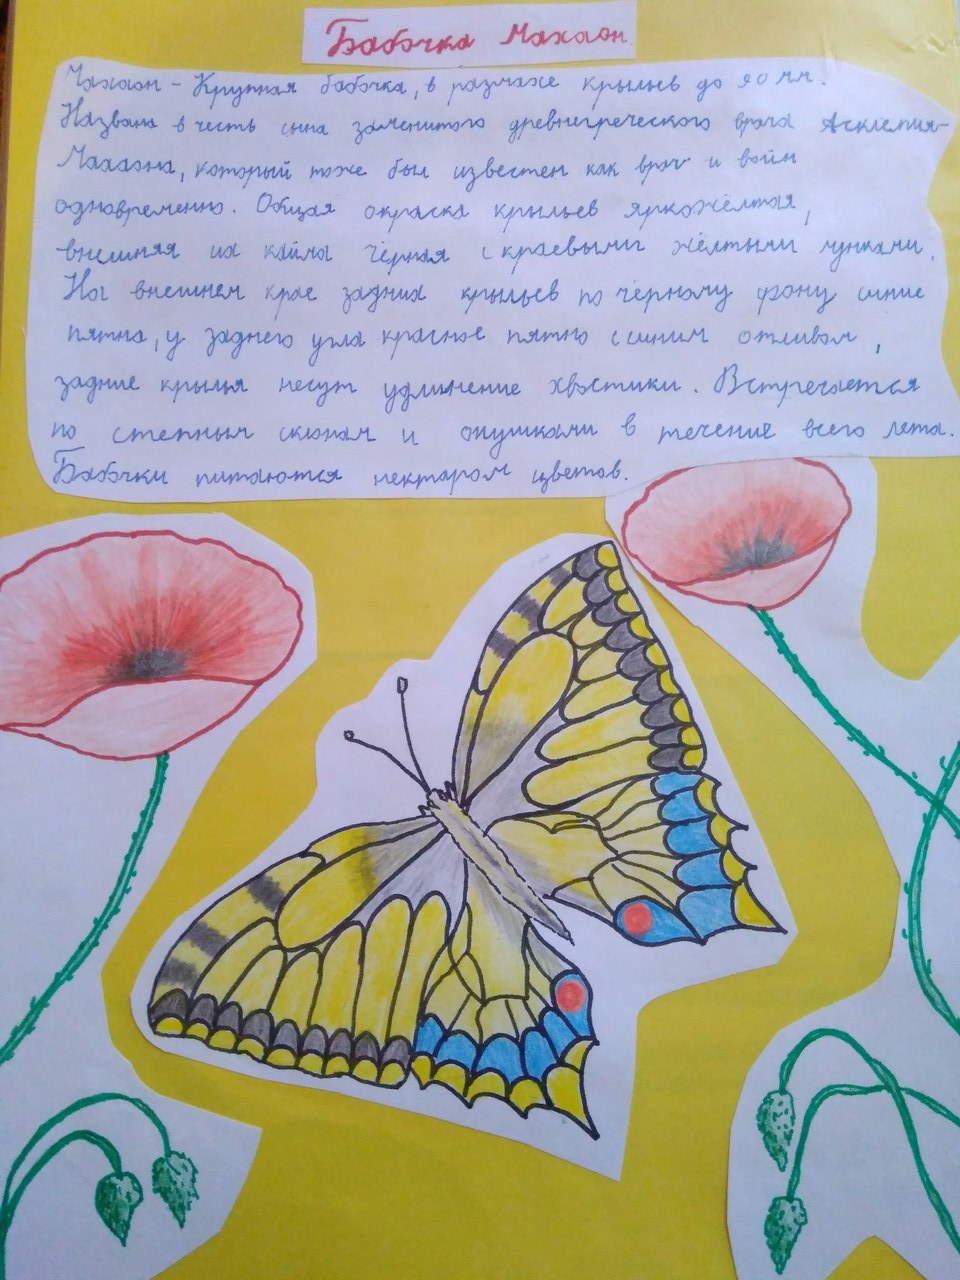 Бабочка Махаон.
Махаон - Крупная бабочка, в размахе крыльев до 90 мм.
Названа в честь сына заменитого древнегреческого врача Асклепия-
Махаона, который тоже был известен как врач и воин
одновременно. Общая окраска крыльев яркожёлтая,
внешняя их кайма чёрная с краевыми жёлтыми лунками.
На внешнем крае задних крыльев по чёрному фону синие
пятна, у заднего угла красное пятно с синим отливом,
задние крылья несут удлинение хвостики. Встречается
по степным склонам и опушками в течение всего лета.
Бабочки питаются нектаром цветов.